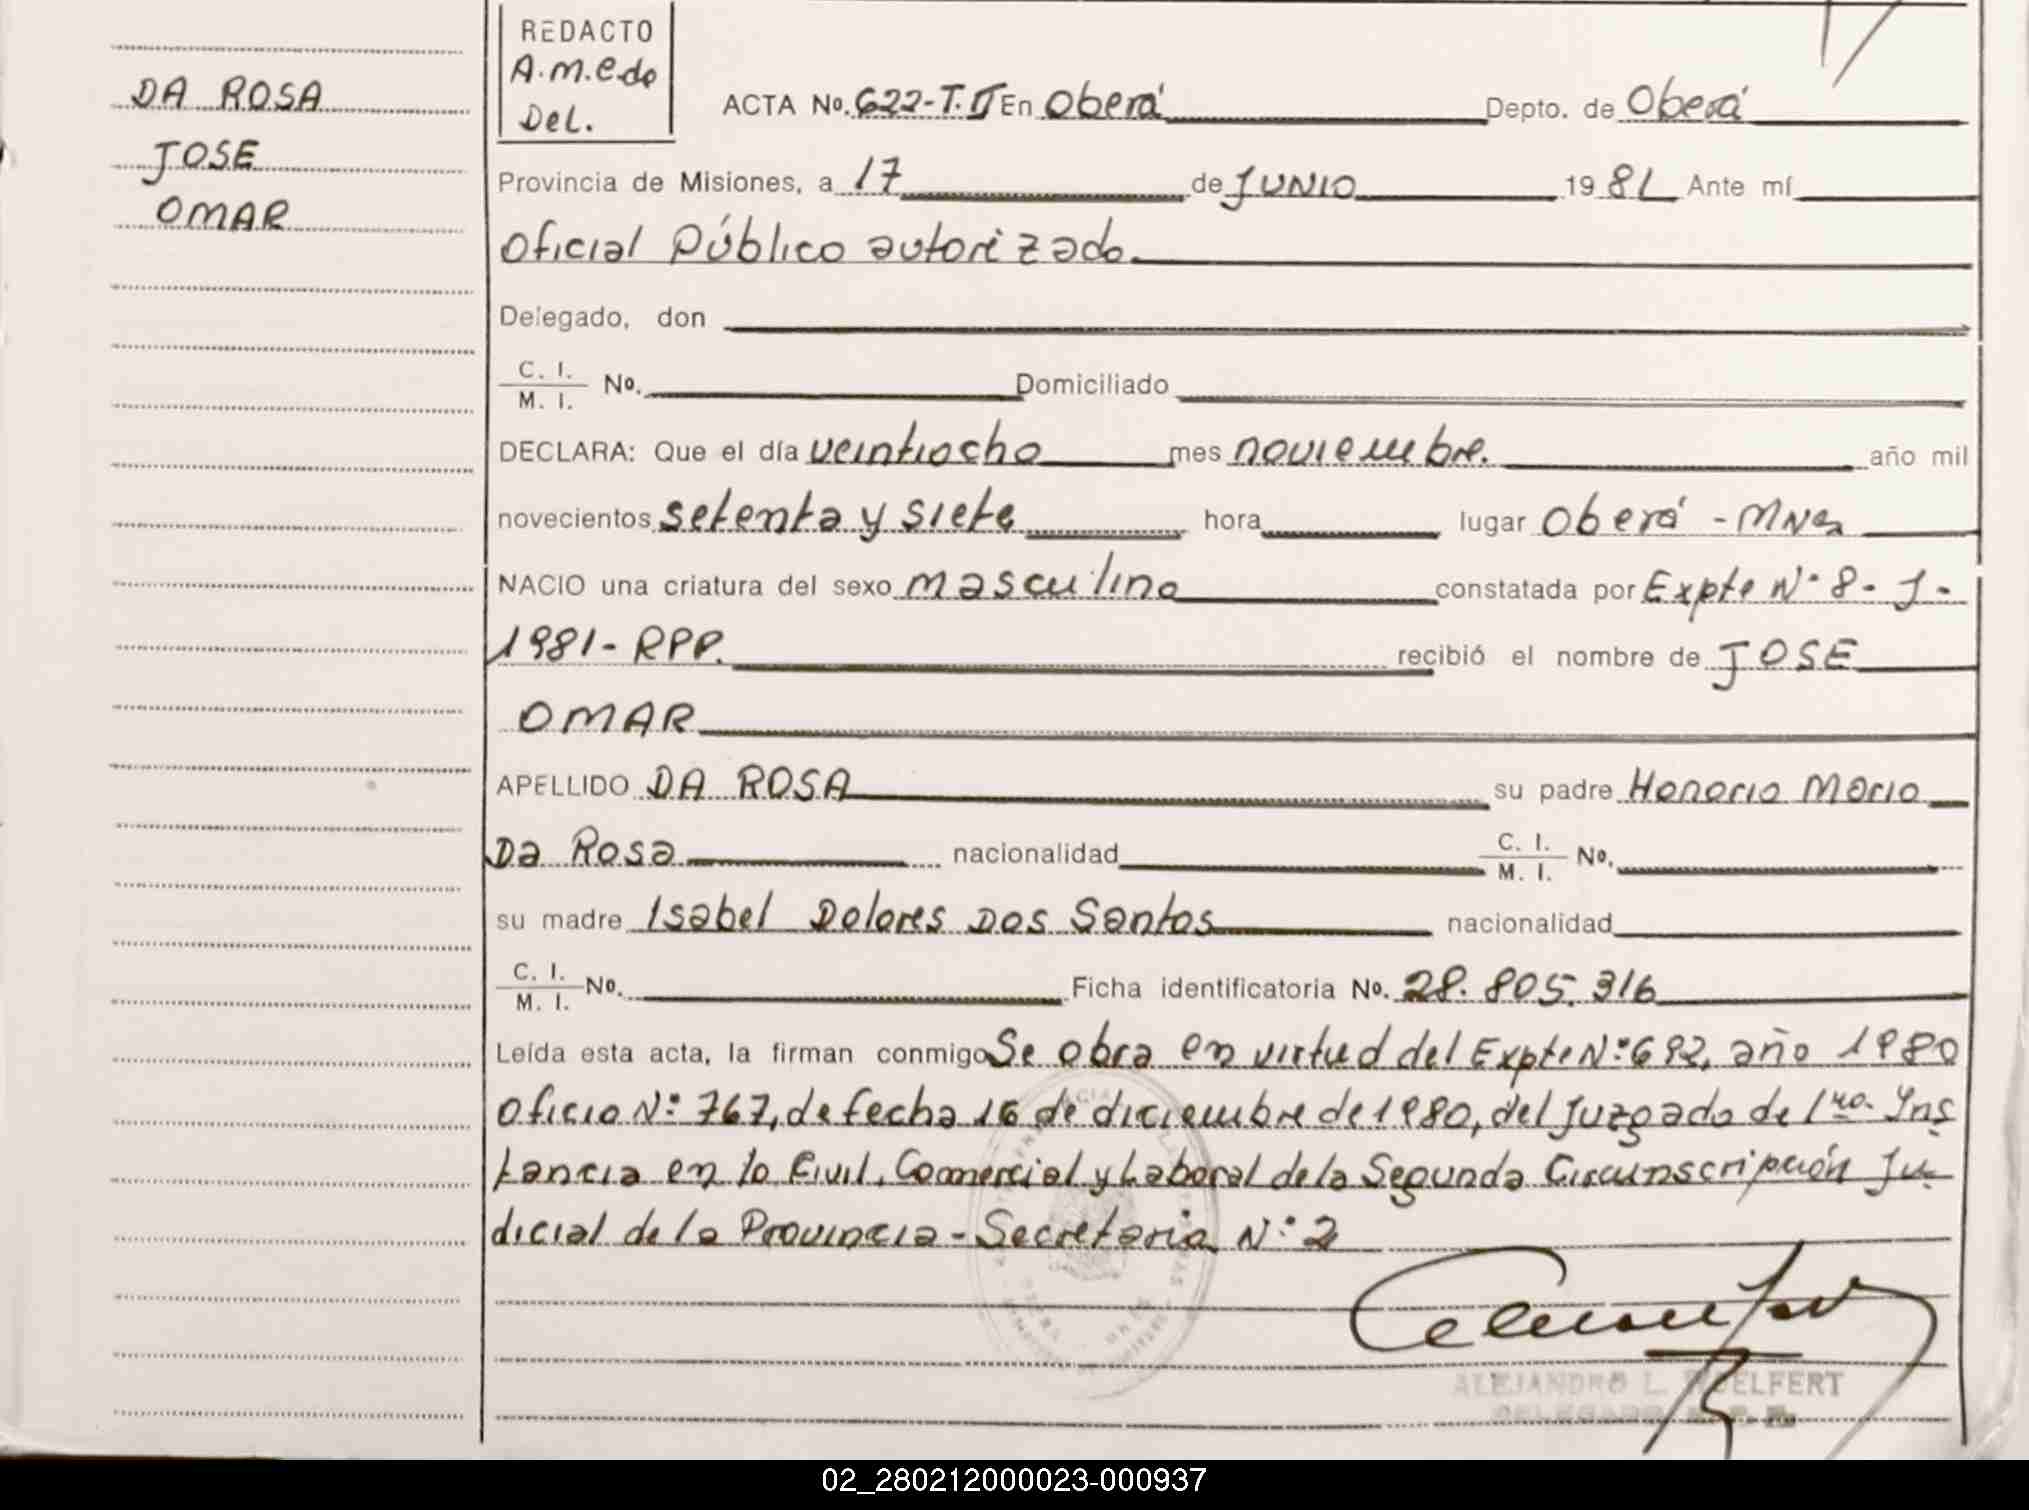 DA ROSA
JOSE
OMAR
REDACTO
A.M.E.do
Del.
ACTA No. 622-T.II En Oberá Depto. de Oberá
Provincia de Misiones, a 17 de JUNIO 1981 Ante mí
Oficial Público autorizado.
Delegado, don
C. I.
M. I. No. Domiciliado
DECLARA: Que el día veintiocho mes noviembre. año mil
novecientos setenta y siete hora lugar Oberá - Mnes
NACIO una criatura del sexo masculino constatada por Expte Nº 8- J-
1981- RPP. recibió el nombre de JOSE
OMAR
APELLIDO DA ROSA su padre Honorio Mario
Da Rosa nacionalidad C. I.
M. I. No.
su madre Isabel Dolores Dos Santos nacionalidad
C. I.
M. I. No. Ficha identificatoria No. 28.805.316
Leída esta acta, la firman conmigo Se obra en virtud del Expte Nº 692, año 1980
Oficio Nº 767, de fecha 16 de diciembre de 1980, del Juzgado de 1ra. Ins
tancia en lo Civil, Comercial y Laboral de la Segunda Circunscripción Ju-
dicial de la Provincia - Secretaria Nº 2
ALEJANDRO L. WUELFERT
DELEGADO
02_280212000023-000937